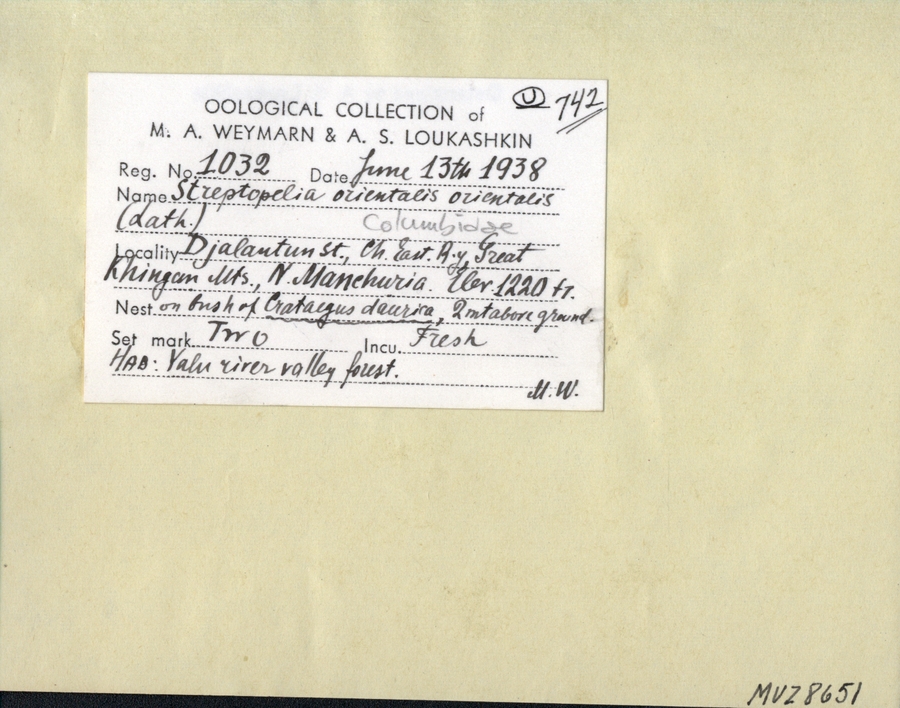 U 742
OOLOGICAL COLLECTION of
M. A. WEYMARN & A. S. LOUKASHKIN
Reg. No. 1032 Date June 13th 1938
Name Streptopelia orientalis orientalis
(Lath.) Columbidae
Locality Djalantun st., Ch. East. R.y, Great
Khingan Mts., N. Manchuria. Elev. 1220 ft.
Nest on bush of Crataegus daurica, 2 mt above ground.
Set mark Two Incu. Fresh
HAB: Yalu river valley forest.
M.W.
MVZ 8651